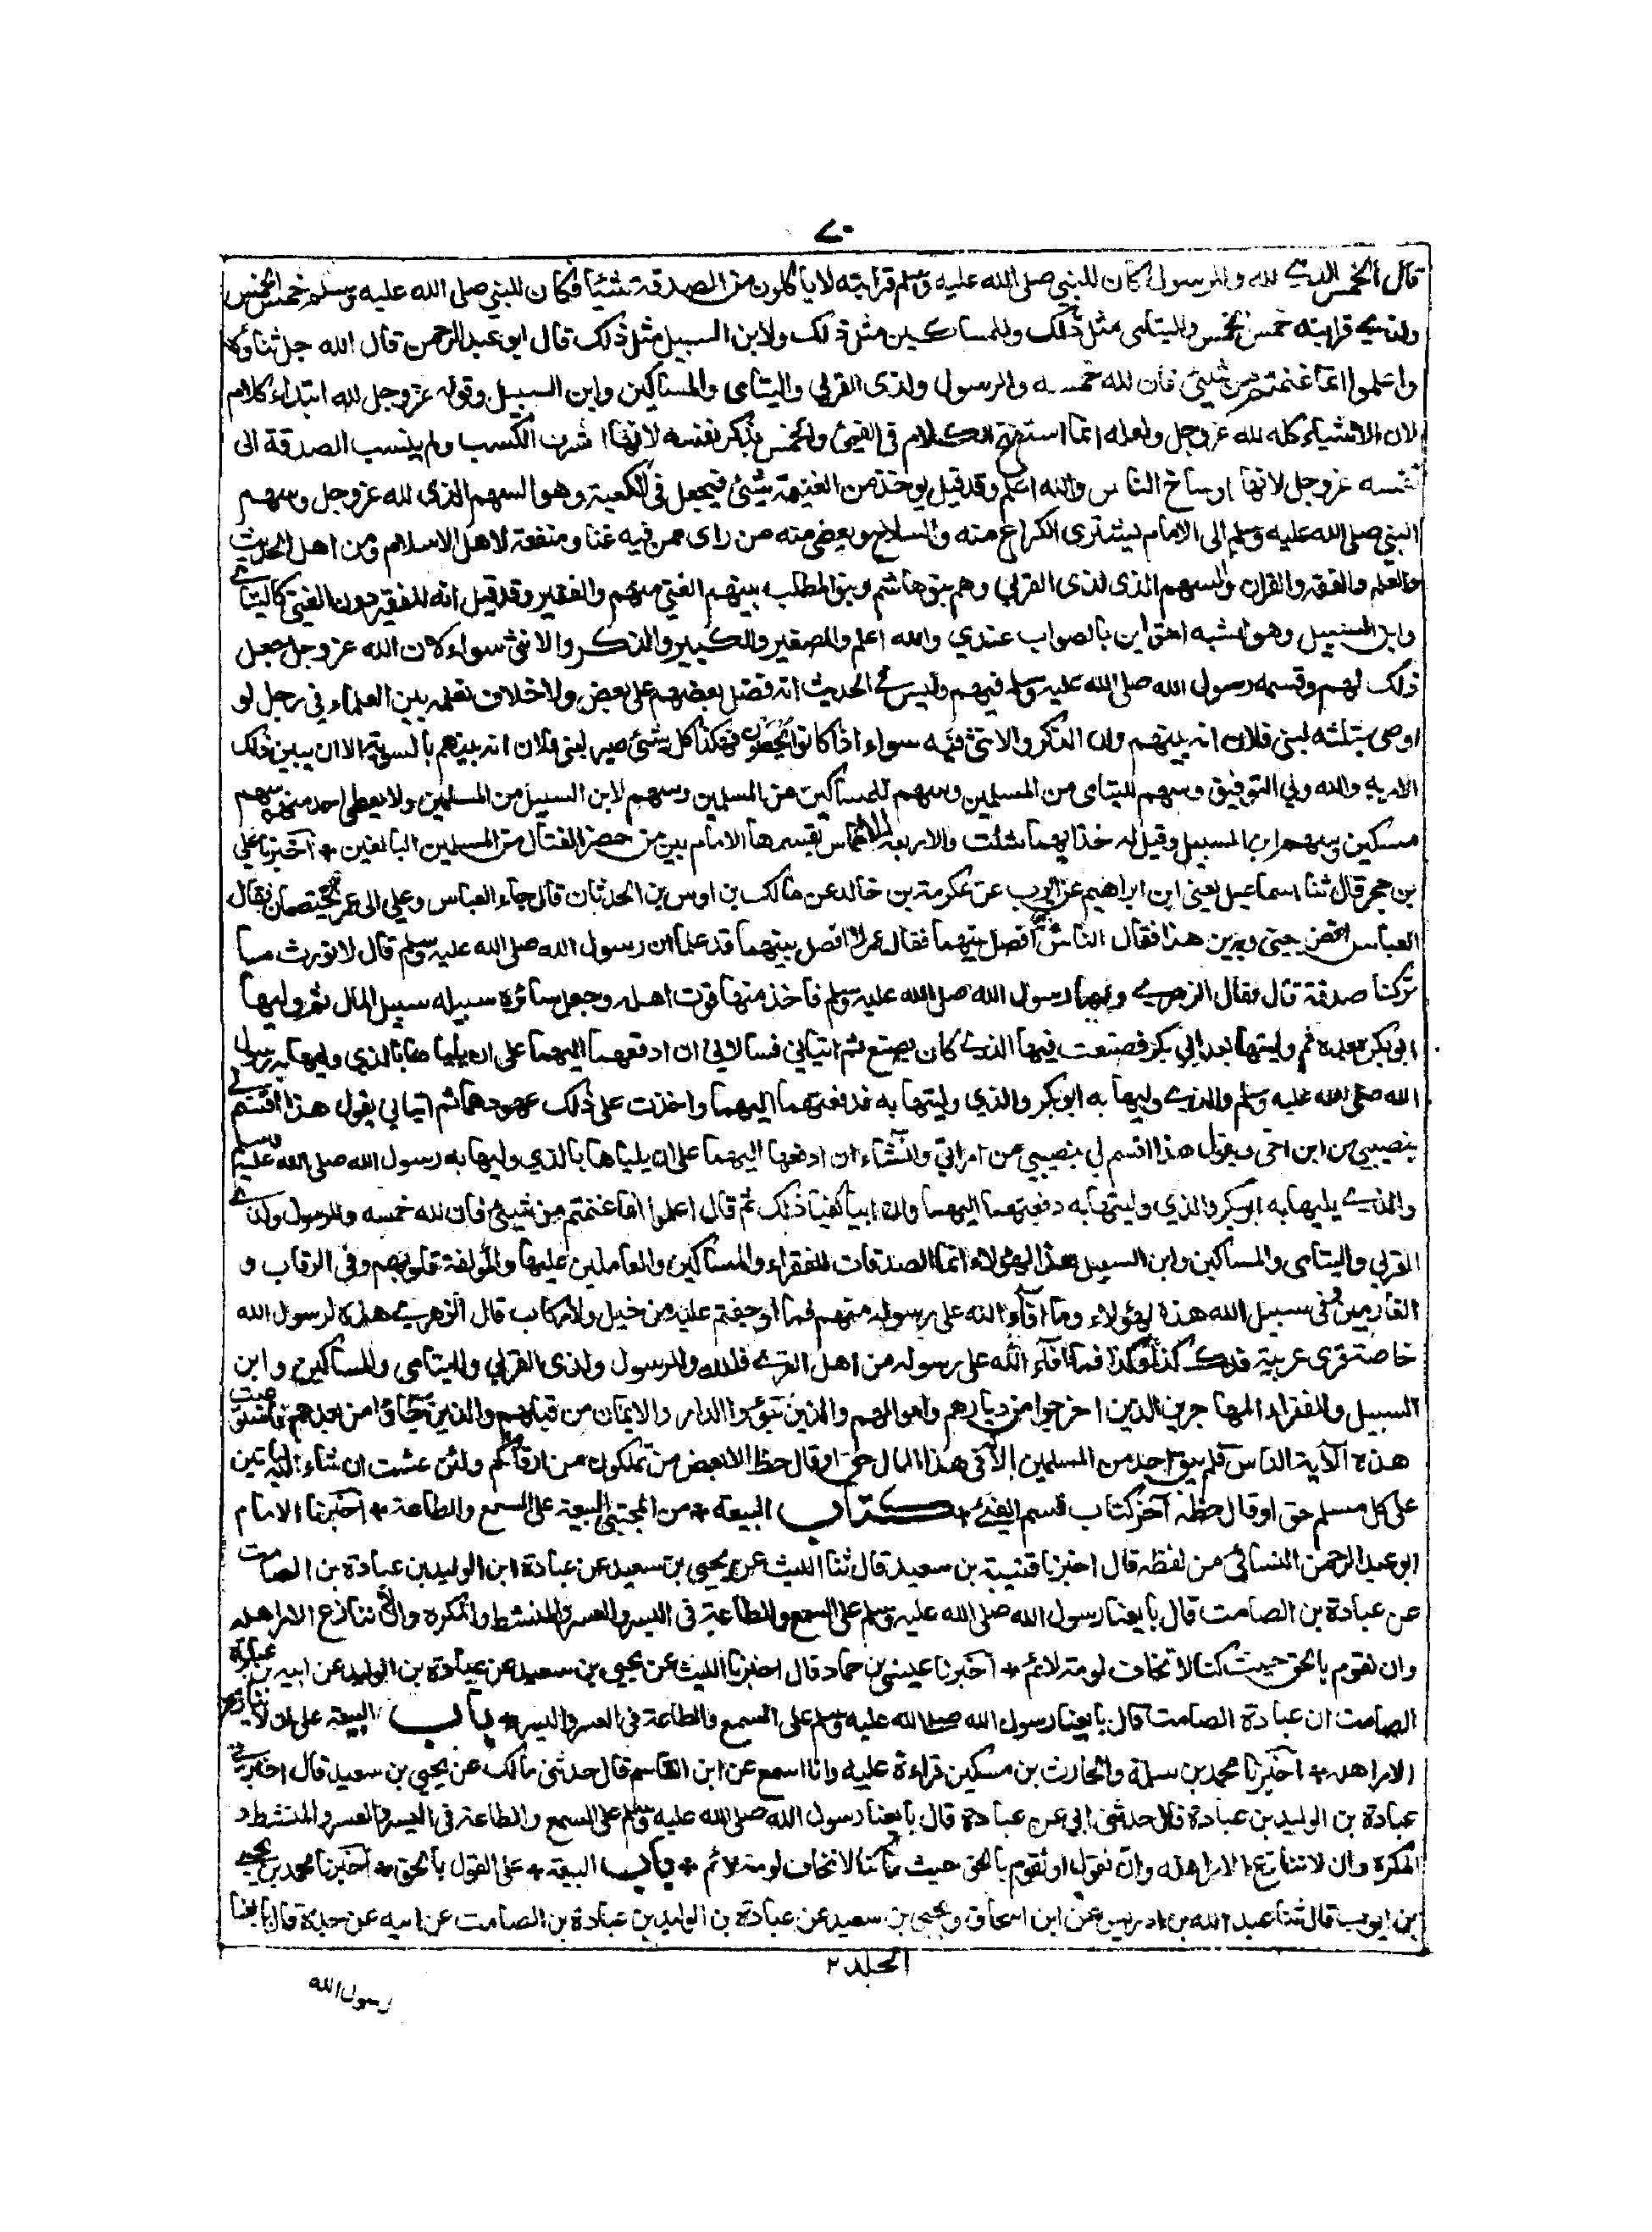 ٧٠
قال الخمس الذي لله وللرسول كان للنبي صلى الله عليه وسلم قرابته لا ياكلون من الصدقة شيئا فكان للنبي صلى الله عليه وسلم خمس الخمس
ولذي قرابته خمس الخمس ولليتامى مثل ذلك وللمساكين مثل ذلك ولابن السبيل مثل ذلك قال ابو عبد الرحمن قال الله جل ثناؤه
واعلموا انما غنمتم من شيئ فان لله خمسه وللرسول ولذى القربي واليتامى والمساكين وابن السبيل وقوله عز وجل لله ابتداء كلام
لان الاشياء كله لله عز وجل ولعله انما استفتح الكلام في الفيئ والخمس بذكر نفسه لانها اشرف الكسب ولم ينسب الصدقة الى
نفسه عز وجل لانها اوساخ الناس والله اعلم وقد قيل يوخذ من الغنيمة شيئ فيجعل في الكعبة وهو السهم الذى لله عز وجل وسهم
النبي صلى الله عليه وسلم الى الامام ليشترى الكراع منه والسلاح ويعطى منه من راى ممن فيه غنا ومنفعة لاهل الاسلام ومن اهل الحديث
والعلم والفقه والقران والسهم الذى لذى القربي وهم بنو هاشم وبنو المطلب بينهم الغني منهم والفقير وقد قيل انه للفقير دون الغني كاليتامي
وابن السبيل وهو اشبه القولين بالصواب عندي والله اعلم والصغير والكبير والذكر والانثى سواء لان الله عز وجل جعل
ذلك لهم وقسمه رسول الله صلى الله عليه وسلم فيهم وليس في الحديث انه فضل بعضهم على بعض ولا خلاف نعلمه بين العلماء في رجل لو
اوصى بثلثه لبنى فلان انه بينهم وان الذكر والانثى فيه سواء اذا كانوا يحصون فهكذا كل شئ صير لبنى فلان انه بينهم بالسوية الا ان يبين ذلك
الامر به والله ولي التوفيق وسهم لليتامى من المسلمين وسهم للمساكين من المسلمين وسهم لابن السبيل من المسلمين ولا يعطى احد منهم سهم
مسكين وسهم ابن السبيل وقيل له خذ ايهما شئت والاربعة الاخماس يقسمها الامام بين من حضر القتال من المسلمين البالغين * اخبرنا علي
بن حجر قال ثنا اسماعيل يعنى ابن ابراهيم عن ايوب عن عكرمة بن خالد عن مالك بن اوس بن الحدثان قال جاء العباس وعلي الى عمر يختصمان فقال
العباس اقض بيني وبين هذا فقال الناس افصل بينهما فقال عمر لا افصل بينهما قد علما ان رسول الله صلى الله عليه وسلم قال لا نورث ما
تركنا صدقة قال فقال الزهري وليها رسول الله صلى الله عليه وسلم فاخذ منها قوت اهله وجعل سائره سبيله سبيل المال ثم وليها
ابو بكر بعده ثم وليتها بعد ابي بكر فصنعت فيها الذي كان يصنع ثم اتياني فسالاني ان ادفعها اليهما على ان يلياها بالذي وليها به رسول
الله صلى الله عليه وسلم والذي وليها به ابو بكر والذي وليتها به فدفعتها اليهما واخذت على ذلك عهودهما ثم اتياني يقول هذا اقسم لي
بنصيبي من ابن اخى ويقول هذا اقسم لي بنصيبي من امراتي وان شاء ان ادفعها اليهما على ان يلياها بالذي وليها به رسول الله صلى الله عليه وسلم
والذي يليها به ابو بكر والذي وليتها به دفعتها اليهما وان ابيا كفيا ذلك ثم قال اعلموا انما غنمتم من شيئ فان لله خمسه وللرسول ولذي
القربي واليتامى والمساكين وابن السبيل هذا لهؤلاء انما الصدقات للفقراء والمساكين والعاملين عليها والمؤلفة قلوبهم وفى الرقاب و
الغارمين وفى سبيل الله هذه لهؤلاء وما افاء الله على رسوله منهم فما اوجفتم عليه من خيل ولا ركاب قال الزهري هذه لرسول الله
خاصة قرى عربية فدك كذا وكذا فما افاء الله على رسوله من اهل القرى فلله وللرسول ولذى القربي واليتامى والمساكين وابن
السبيل وللفقراء المهاجرين الذين اخرجوا من ديارهم واموالهم والذين تبوؤا الدار والايمان من قبلهم والذين جاؤا من بعدهم فاستوعبت
هذه الآية الناس فلم يبق احد من المسلمين الا في هذا المال حق او قال حظ الا بعض من تملكون من ارقائكم ولئن عشت ان شاء الله لياتين
على كل مسلم حق او قال حظه آخر كتاب قسم الفئ * كتاب البيعة * من المجتبى البيعة على السمع والطاعة * اخبرنا الامام
ابو عبد الرحمن النسائى من لفظه قال اخبرنا قتيبة بن سعيد قال ثنا الليث عن يحيى بن سعيد عن عبادة ابن الوليد بن عبادة بن الصامت
عن عبادة بن الصامت قال بايعنا رسول الله صلى الله عليه وسلم على السمع والطاعة فى اليسر والعسر والمنشط والمكره وان لا ننازع الامر اهله
وان نقوم بالحق حيث كنا لا نخاف لومة لائم * اخبرنا عيسى بن حماد قال اخبرنا الليث عن يحيى بن سعيد عن عبادة بن الوليد عن ابيه بن عبادة
الصامت ان عبادة الصامت قال بايعنا رسول الله صلى الله عليه وسلم على السمع والطاعة فى العسر واليسر * باب البيعة على ان لا ننازع
الامر اهله * اخبرنا محمد بن سلمة والحارث بن مسكين قراءة عليه وانا اسمع عن ابن القاسم قال حدثنى مالك عن يحيى بن سعيد قال اخبرني
عبادة بن الوليد بن عبادة قال حدثنى ابى عن عبادة قال بايعنا رسول الله صلى الله عليه وسلم على السمع والطاعة فى اليسر والعسر والمنشط و
المكره وان لا ننازع الامر اهله وان نقول او نقوم بالحق حيث ما كنا لا نخاف لومة لائم * باب البيعة * على القول بالحق * اخبرنا محمد بن يحيى
بن ايوب قال ثنا عبد الله بن ادريس عن ابن اسحاق ويحيى بن سعيد عن عبادة بن الوليد بن عبادة بن الصامت عن ابيه عن جده قال بايعنا
الجلد ٢
رسول الله